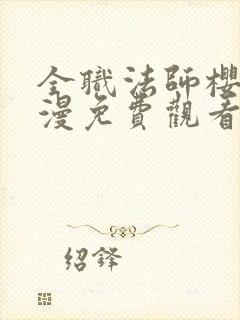 全職法師櫻
漫免費觀看
绍鋒